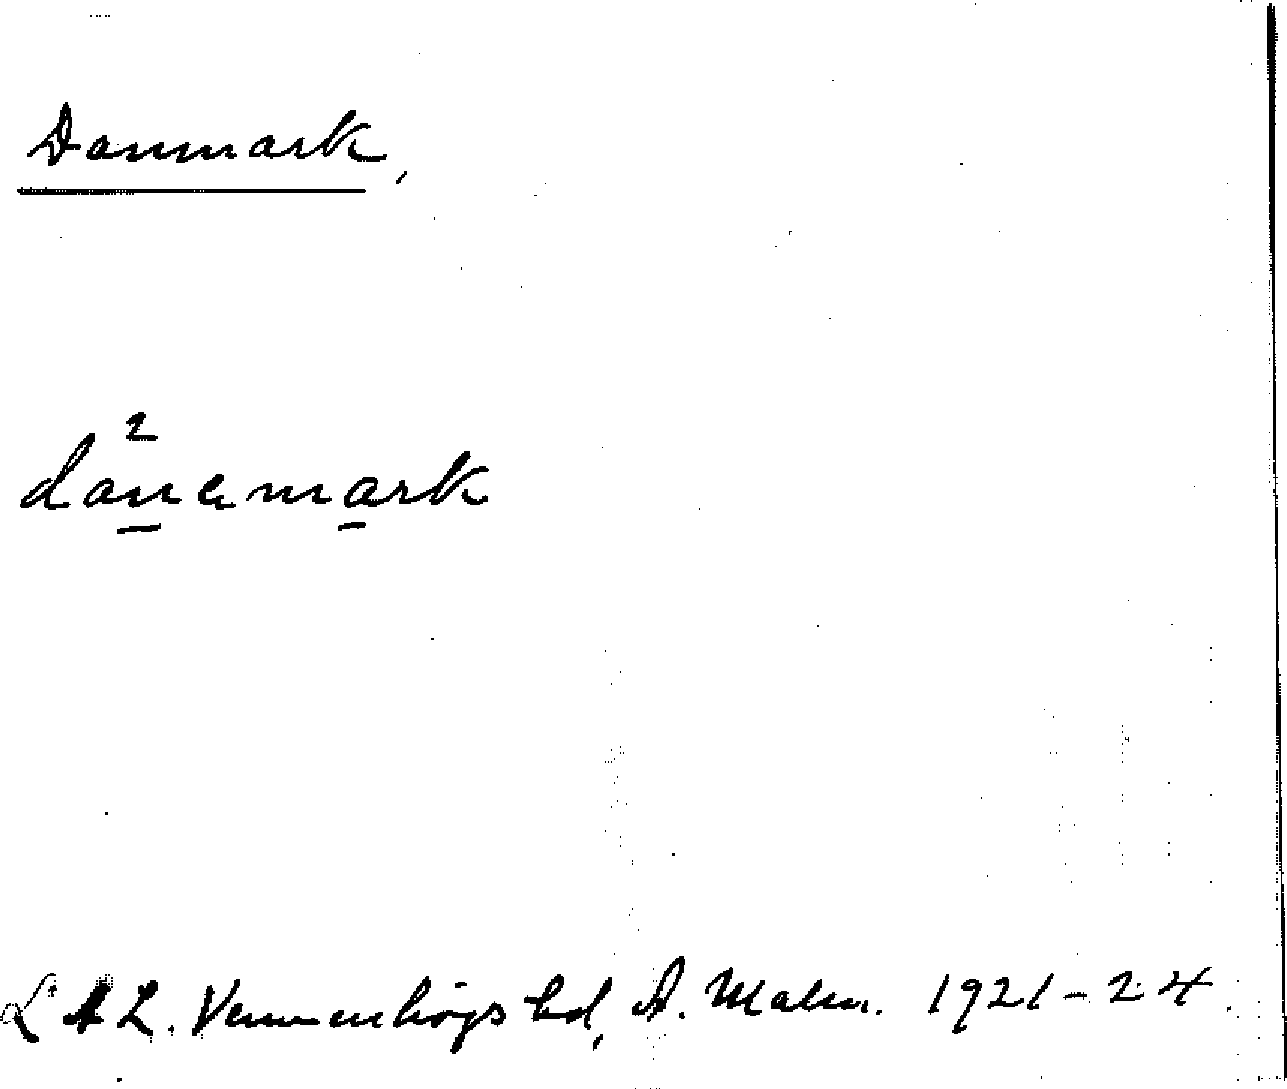 Danmark,
2
danamark
LAL. Vemmenhögs hd, A. Malm. 1921-24.